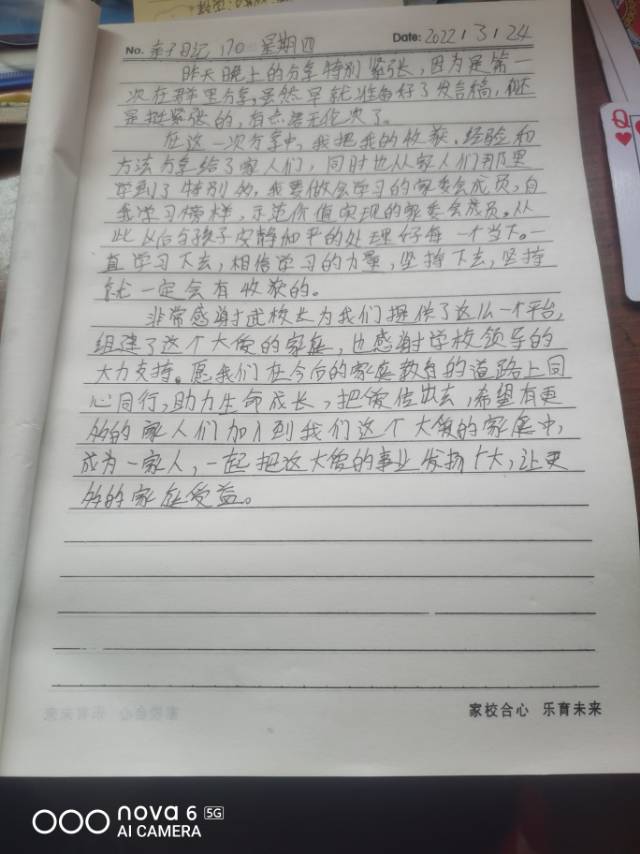 No. 亲子日记 170 星期四 Date: 2022 / 3 / 24
昨天晚上的分享特别紧张,因为是第一
次在群里分享,虽然早就准备好了发言稿,但还
是挺紧张的,有点语无伦次了。
在这一次分享中,我把我的收获、经验和
方法分享给了家人们,同时也从家人们那里
学到了特别多,我要做会学习的家委会成员,自
我学习榜样,示范价值实现的家委会成员。从
此以后与孩子安静和平的处理好每一个当下。一
直学习下去,相信学习的力量,坚持下去,坚持
就一定会有收获的。
非常感谢武校长为我们提供了这么一个平台,
组建了这个大爱的家庭,也感谢学校领导的
大力支持。愿我们在今后的家庭教育的道路上同
心同行,助力生命成长,把爱传出去,希望有更
多的家人们加入到我们这个大爱的家庭中,
成为一家人,一起把这大爱的事业发扬广大,让更
多的家庭受益。
家校合心 乐育未来
nova 6 5G
AI CAMERA
Q